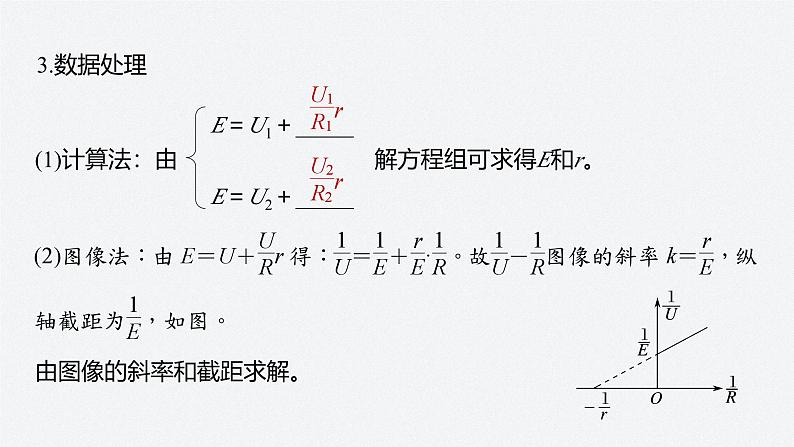 3.数据处理
(1)计算法：由 { E＝U₁＋(U₁/R₁)r
E＝U₂＋(U₂/R₂)r 解方程组可求得E和r。
(2)图像法：由 E＝U＋(U/R)r 得：1/U＝1/E＋r/E·1/R。故1/U－1/R图像的斜率 k＝r/E，纵
轴截距为1/E，如图。
由图像的斜率和截距求解。
1/U
1/E
－1/r O 1/R